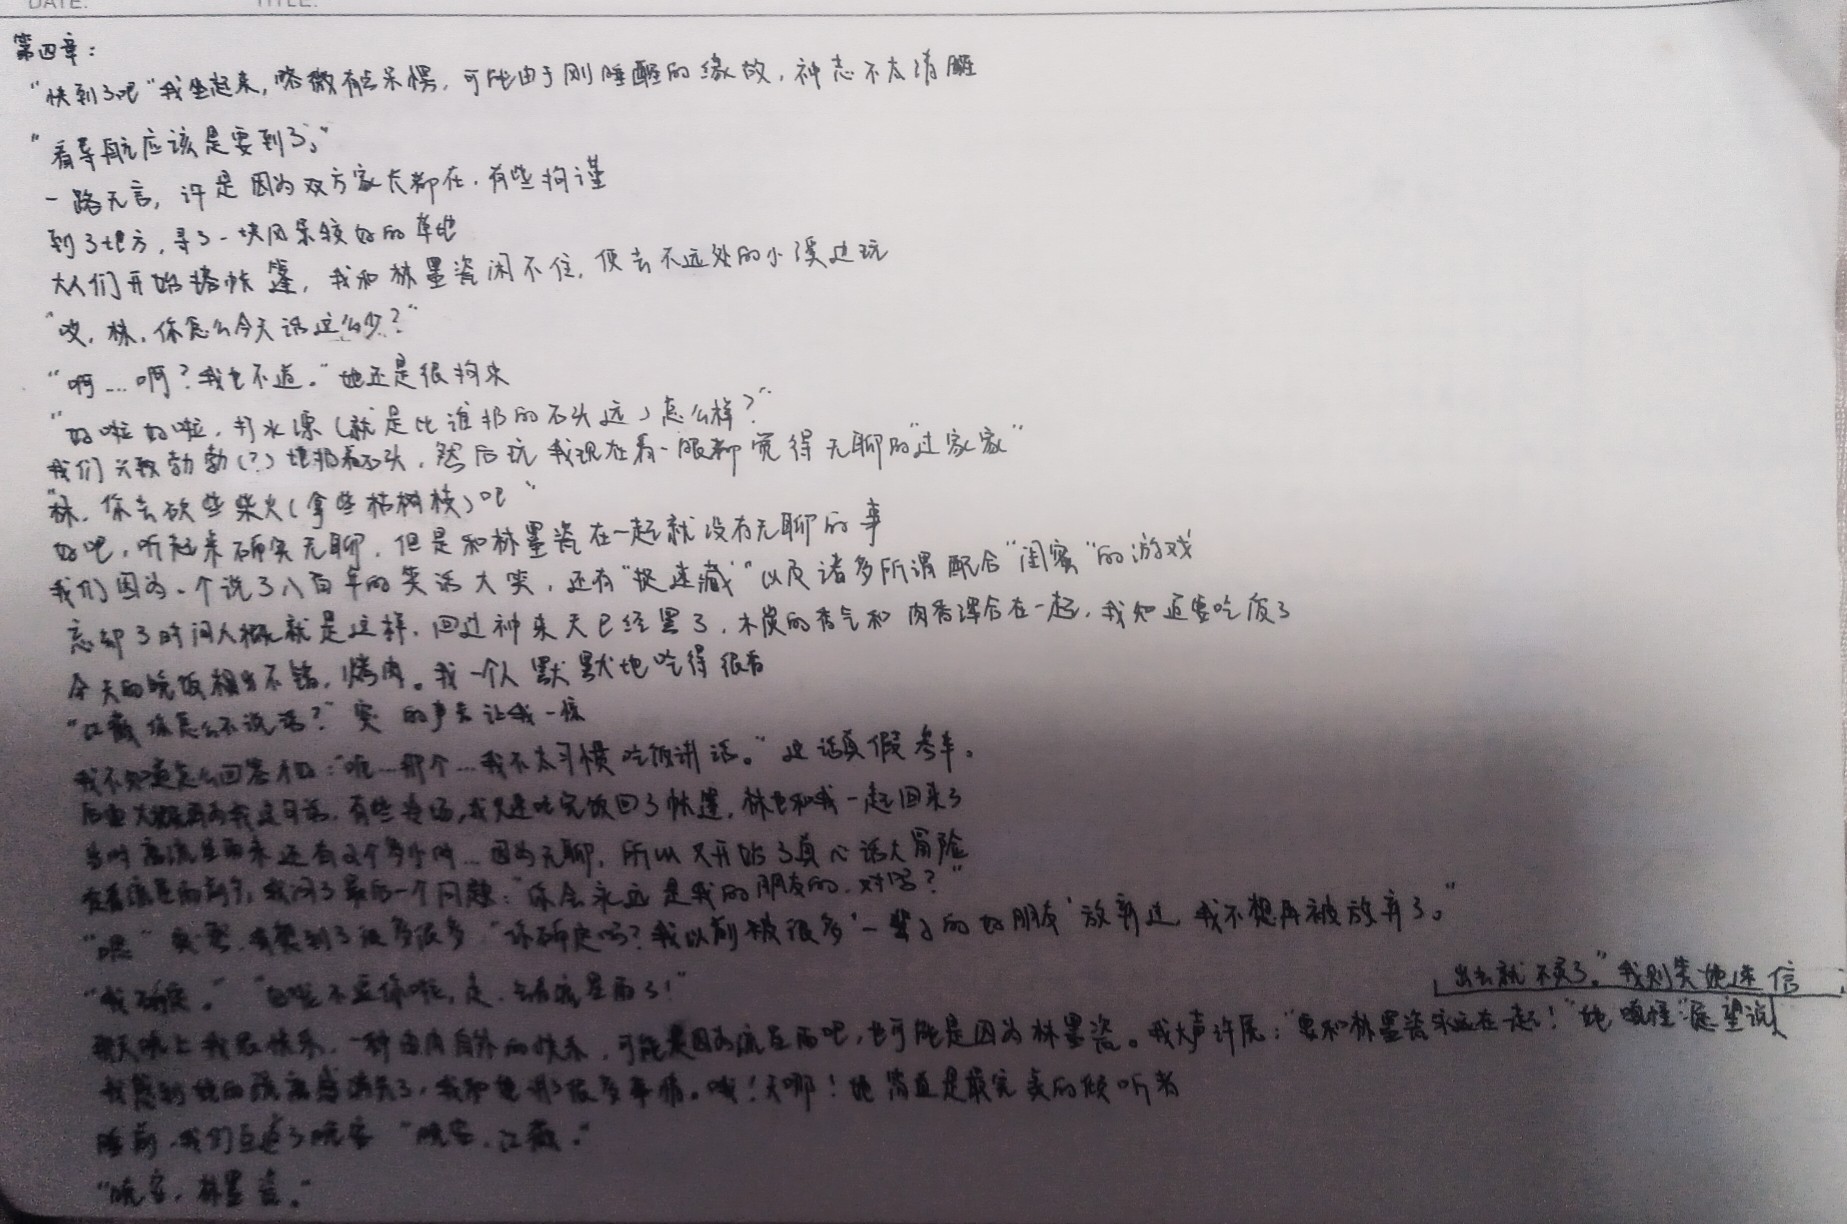 DATE: TITLE:
第四章：
“快到了吧”我坐起来，略微有点呆愣，可能由于刚睡醒的缘故，神志不太清醒
“看导航应该是要到了。”
一路无言，许是因为双方家长都在，有些拘谨
到了地方，寻了一块风景较好的草地
大人们开始搭帐篷，我和林墨瓷闲不住，便去不远处的小溪边玩
“哎，林，你怎么今天话这么少？”
“啊…啊？我也不道。”她还是很拘束
“好啦好啦，打水漂（就是比谁扔的石头远）怎么样？”
我们兴致勃勃（？）地扔着石头，然后玩我现在看一眼都觉得无聊的“过家家”
“林，你去砍些柴火（拿些枯树枝）吧”
好吧，听起来确实无聊，但是和林墨瓷在一起就没有无聊的事
我们因为一个说了八百年的笑话大笑，还有“捉迷藏”以及诸多所谓配合“闺蜜”的游戏
忘却了时间大概就是这样，回过神来天已经黑了，木炭的香气和肉香混合在一起，我知道要吃饭了
今天的晚饭相当不错，烤肉。我一个人默默地吃得很香
“江薇你怎么不说话？”突的声音让我一惊
我不知道怎么回答：“呃…那个…我不太习惯吃饭讲话。”这话真假参半。
后面大概因为我这句话，有些冷场，我只是吃完饭回了帐篷，林也和我一起回来了
当时离流星雨来还有2个多小时…因为无聊，所以又开始了真心话大冒险
在看流星雨前夕，我问了最后一个问题：“你会永远是我的朋友的，对吗？”
“嗯”突然，我想到了很多很多“你确定吗？我以前被很多‘一辈子的好朋友’放弃过，我不想再被放弃了。”
“我确定。”“好啦不逗你啦，走，去看流星雨了！”
那天晚上我很快乐，一种由内自外的快乐，可能是因为流星雨吧，也可能是因为林墨瓷。我大声许愿：“要和林墨瓷永远在一起！”她嗔怪“愿望说
出去就不灵了。”我则笑她迷信
我感到她的疏离感消失了，我和她讲了很多事情。哦！天哪！她简直是最完美的倾听者
睡前，我们互道了晚安“晚安，江薇。”
“晚安，林墨瓷。”